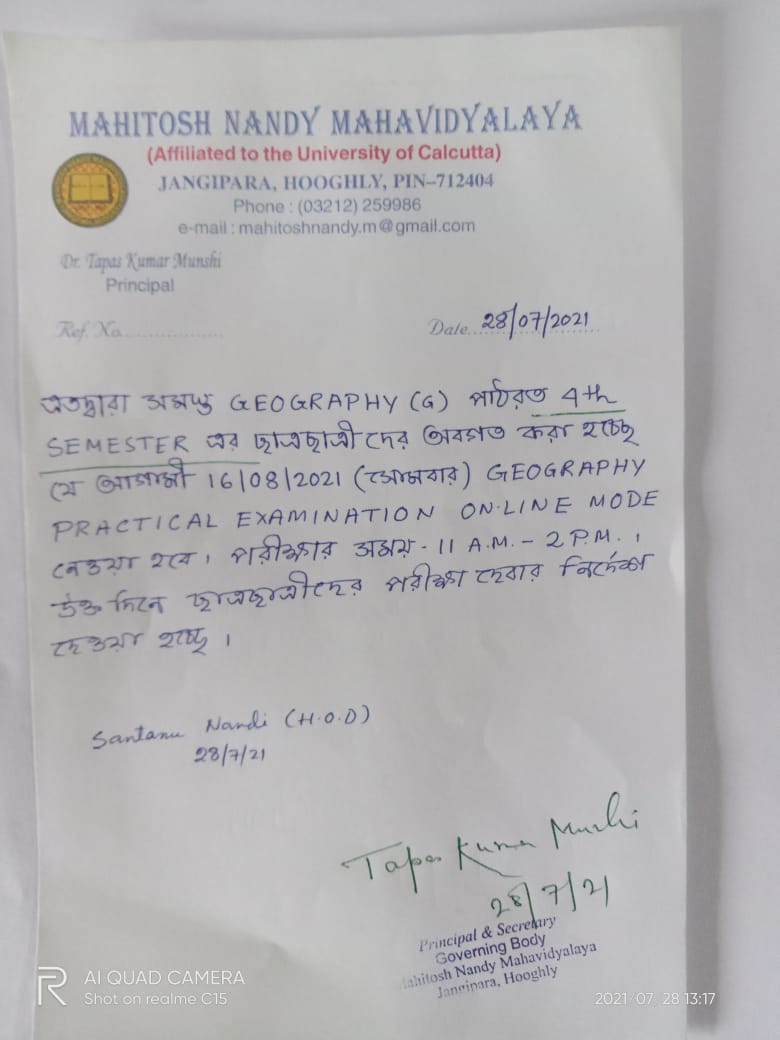 MAHITOSH NANDY MAHAVIDYALAYA
(Affiliated to the University of Calcutta)
JANGIPARA, HOOGHLY, PIN–712404
Phone : (03212) 259986
e-mail : mahitoshnandy.m@gmail.com
Dr. Tapas Kumar Munshi
Principal
Ref. No....................
Date...28/07/2021......
এতদ্বারা সমস্ত GEOGRAPHY (G) পাঠরত 4th
SEMESTER এর ছাত্রছাত্রীদের অবগত করা হচ্ছে
যে আগামী 16/08/2021 (সোমবার) GEOGRAPHY
PRACTICAL EXAMINATION ON-LINE MODE
নেওয়া হবে। পরীক্ষার সময় - 11 A.M. – 2 P.M. ।
উক্ত দিনে ছাত্রছাত্রীদের পরীক্ষা দেবার নির্দেশ
দেওয়া হচ্ছে ।
Santanu Nandi (H.O.D)
28/7/21
Tapas Kumar Munshi
28/7/21
Principal & Secretary
Governing Body
Mahitosh Nandy Mahavidyalaya
Jangipara, Hooghly
R AI QUAD CAMERA
Shot on realme C15
2021.07.28 13:17